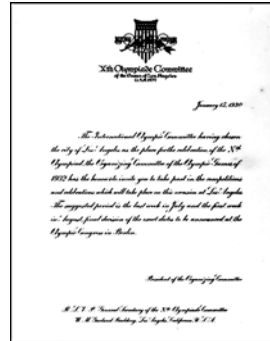 Xth Olympiade Committee
of the Games of Los Angeles
U.S.A. 1932
January 15, 1930
The International Olympic Committee having chosen
the city of Los Angeles as the place for the celebration of the Xth
Olympiad, the Organizing Committee of the Olympic Games of
1932 has the honor to invite you to take part in the competitions
and celebrations which will take place on this occasion at Los Angeles
The suggested period is the last week in July and the first week
in August, final decision of the exact dates to be announced at the
Olympic Congress in Berlin.
President of the Organizing Committee
R.S.V.P. General Secretary of the Xth Olympiade Committee
W. M. Garland Building, Los Angeles, California, U.S.A.